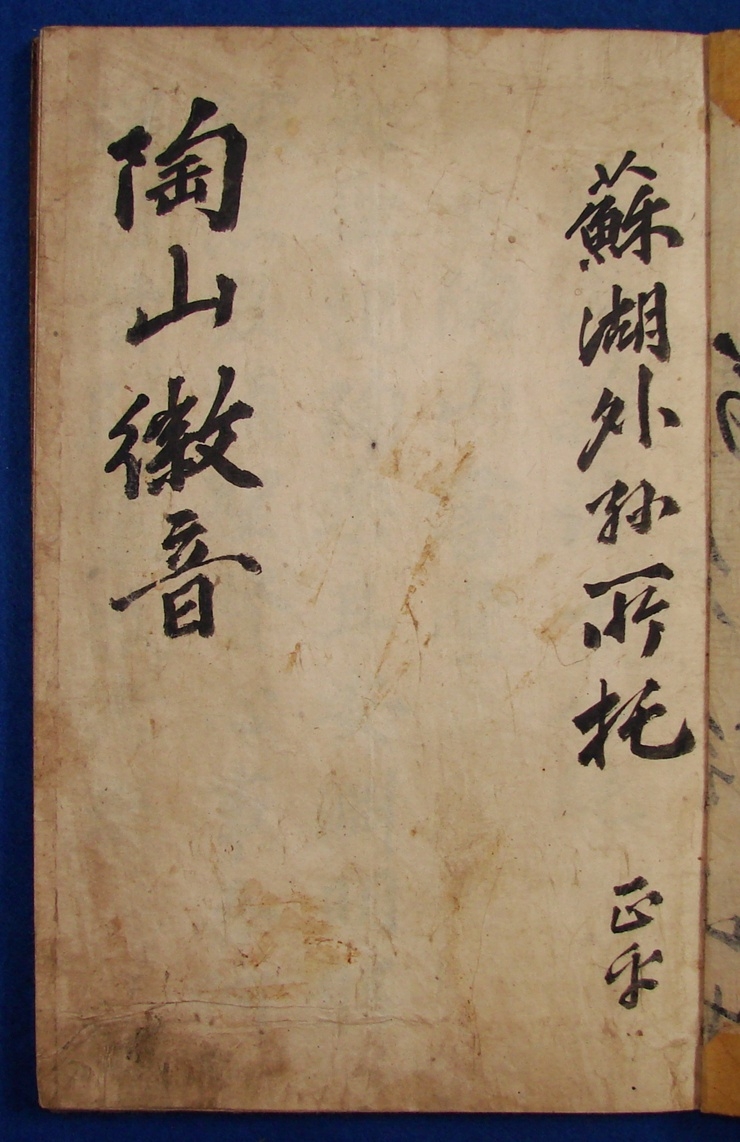 蘇湖外孫所托
正平
陶山徽音